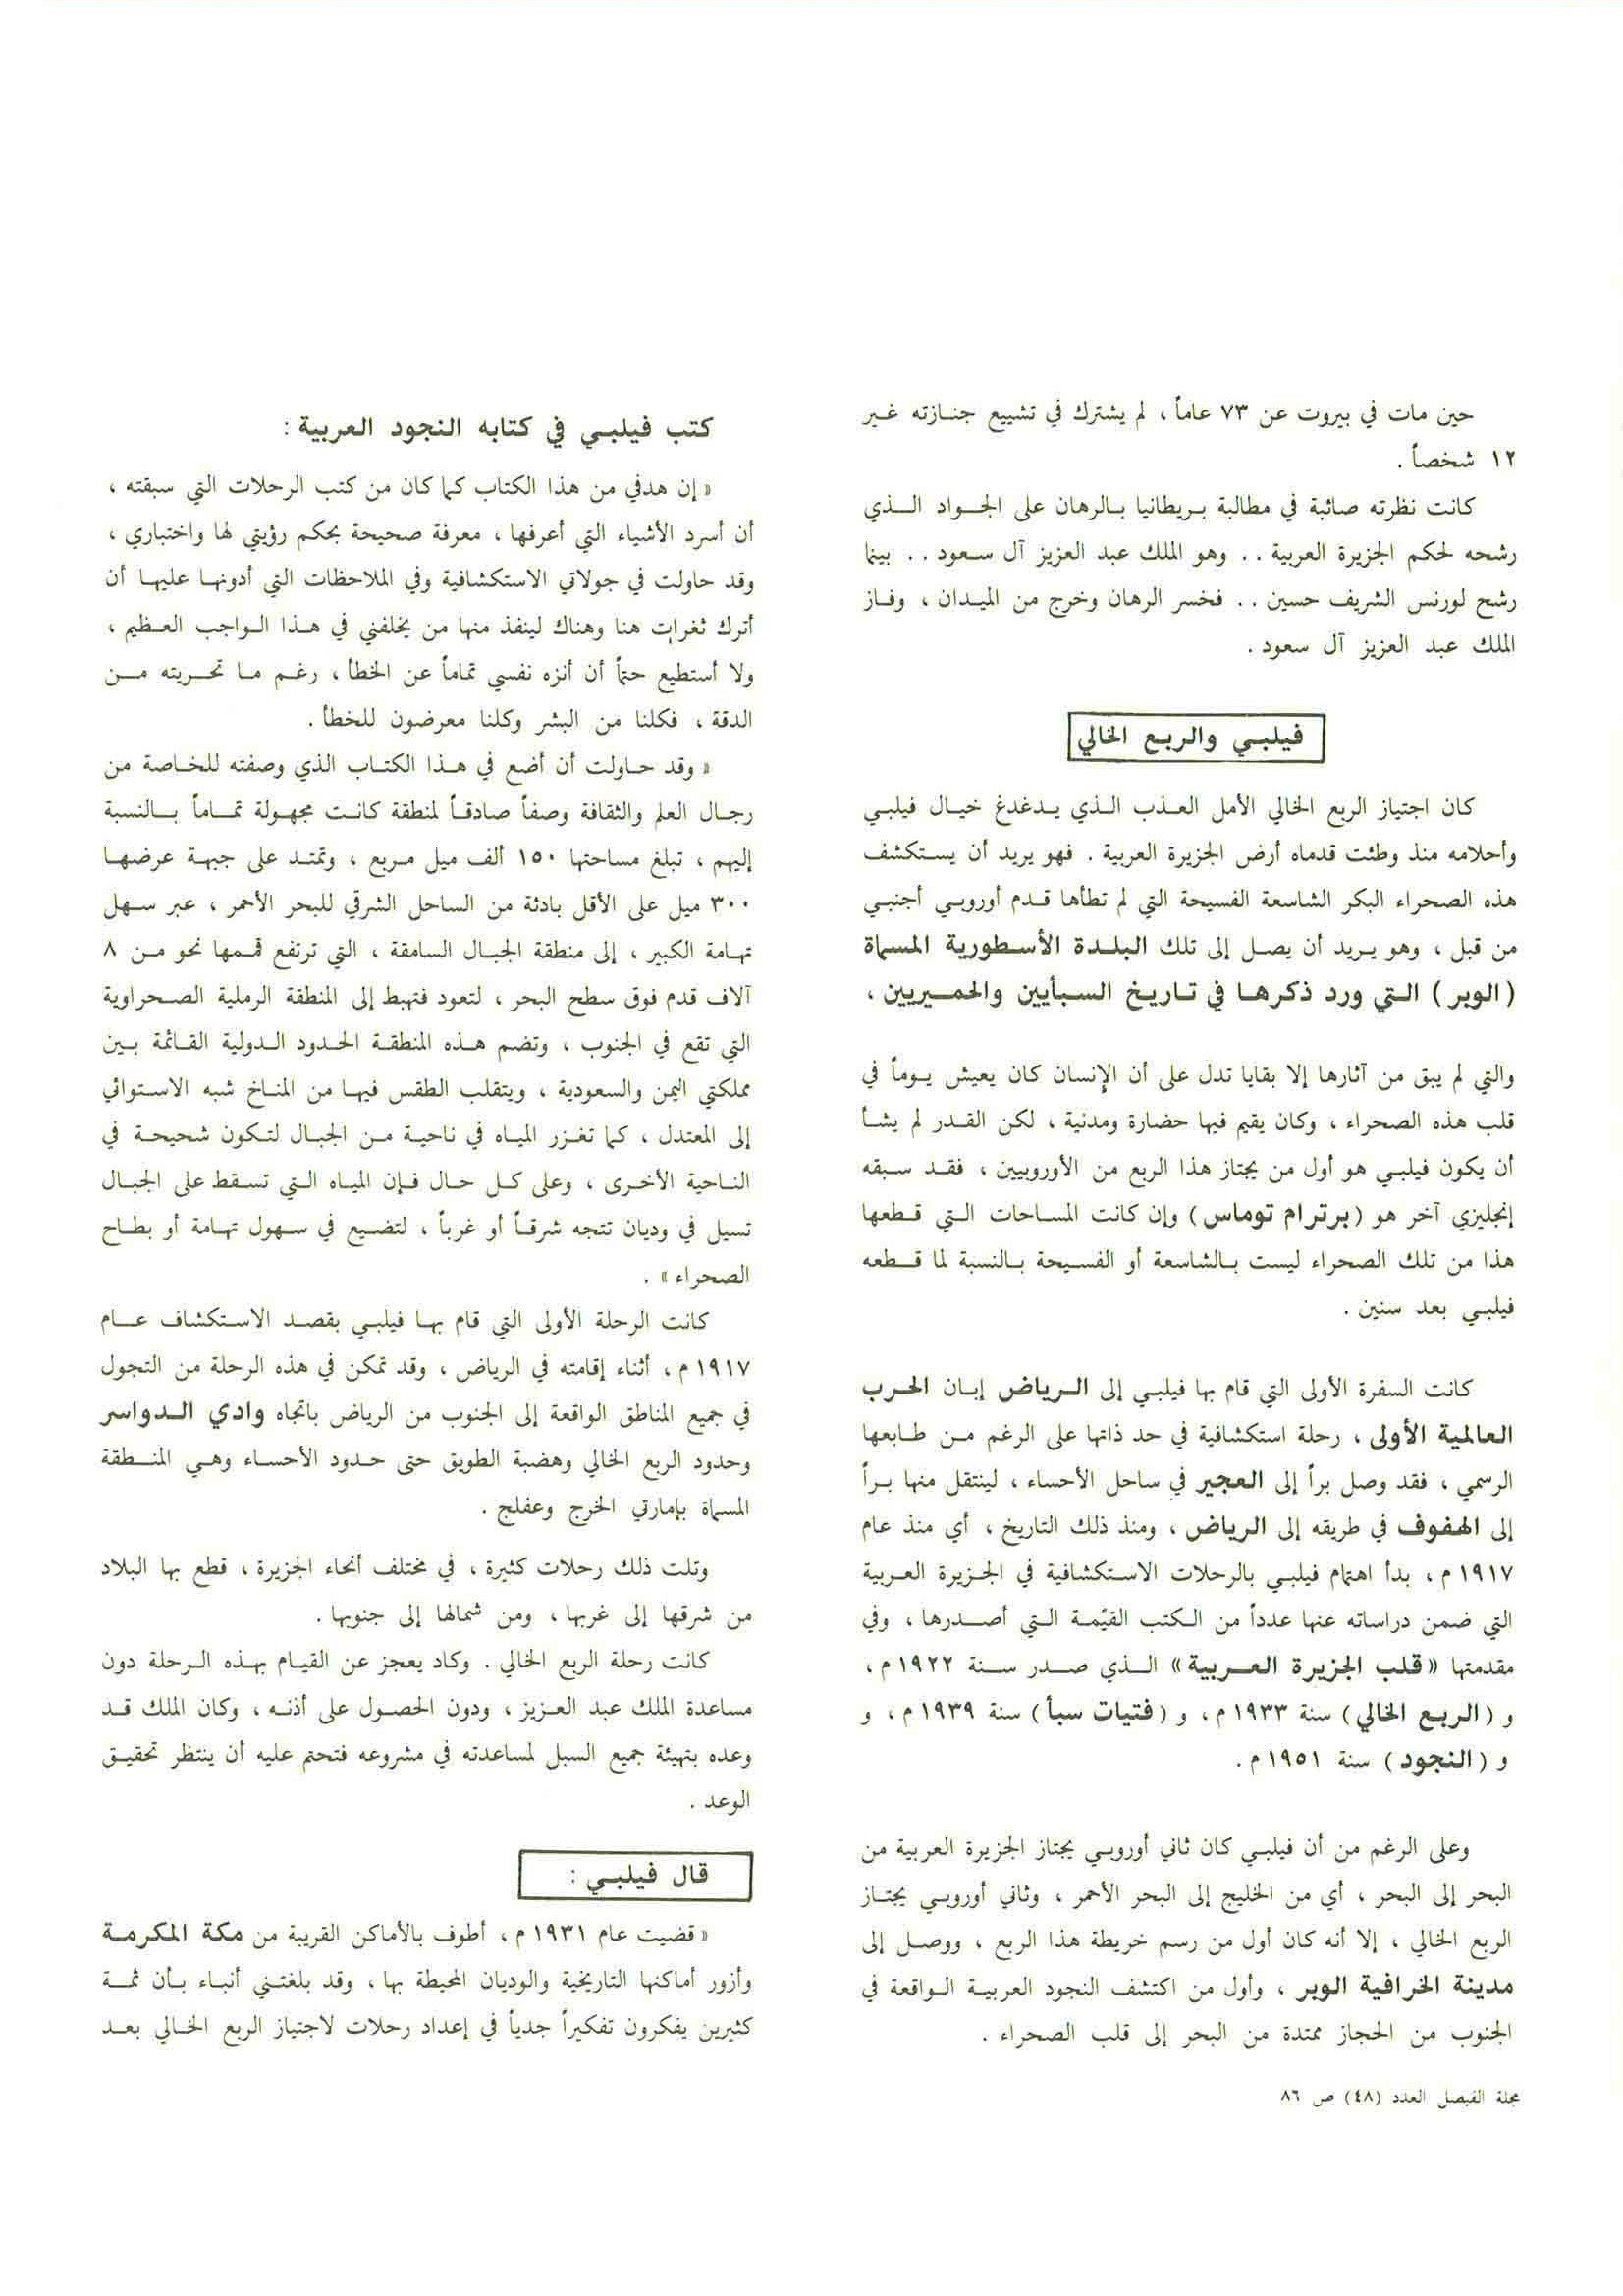 حين مات في بيروت عن ٧٣ عاماً ، لم يشترك في تشييع جنازته غير
١٢ شخصاً .
كانت نظرته صائبة في مطالبة بريطانيا بالرهان على الجواد الذي
رشحه لحكم الجزيرة العربية .. وهو الملك عبد العزيز آل سعود .. بينما
رشح لورنس الشريف حسين .. فخسر الرهان وخرج من الميدان ، وفاز
الملك عبد العزيز آل سعود .
فيلبي والربع الخالي
كان اجتياز الربع الخالي الأمل العذب الذي يدغدغ خيال فيلبي
وأحلامه منذ وطئت قدماه أرض الجزيرة العربية . فهو يريد أن يستكشف
هذه الصحراء البكر الشاسعة الفسيحة التي لم تطأها قدم أوروبي أجنبي
من قبل ، وهو يريد أن يصل إلى تلك البلدة الأسطورية المسماة
( الوبر ) التي ورد ذكرها في تاريخ السبأيين والحميريين ،
والتي لم يبق من آثارها إلا بقايا تدل على أن الإنسان كان يعيش يوماً في
قلب هذه الصحراء ، وكان يقيم فيها حضارة ومدنية ، لكن القدر لم يشأ
أن يكون فيلبي هو أول من يجتاز هذا الربع من الأوروبيين ، فقد سبقه
إنجليزي آخر هو ( برترام توماس ) وإن كانت المساحات التي قطعها
هذا من تلك الصحراء ليست بالشاسعة أو الفسيحة بالنسبة لما قطعه
فيلبي بعد سنين .
كانت السفرة الأولى التي قام بها فيلبي إلى الرياض إبان الحرب
العالمية الأولى ، رحلة استكشافية في حد ذاتها على الرغم من طابعها
الرسمي ، فقد وصل براً إلى العجير في ساحل الأحساء ، لينتقل منها براً
إلى الهفوف في طريقه إلى الرياض ، ومنذ ذلك التاريخ ، أي منذ عام
١٩١٧ م ، بدأ اهتمام فيلبي بالرحلات الاستكشافية في الجزيرة العربية
التي ضمن دراساته عنها عدداً من الكتب القيّمة التي أصدرها ، وفي
مقدمتها « قلب الجزيرة العربية » الذي صدر سنة ١٩٢٢ م ،
و ( الربع الخالي ) سنة ١٩٣٣ م ، و ( فتيات سبأ ) سنة ١٩٣٩ م ، و
و ( النجود ) سنة ١٩٥١ م .
وعلى الرغم من أن فيلبي كان ثاني أوروبي يجتاز الجزيرة العربية من
البحر إلى البحر ، أي من الخليج إلى البحر الأحمر ، وثاني أوروبي يجتاز
الربع الخالي ، إلا أنه كان أول من رسم خريطة هذا الربع ، ووصل إلى
مدينة الخرافية الوبر ، وأول من اكتشف النجود العربية الواقعة في
الجنوب من الحجاز ممتدة من البحر إلى قلب الصحراء .
كتب فيلبي في كتابه النجود العربية :
« إن هدفي من هذا الكتاب كما كان من كتب الرحلات التي سبقته ،
أن أسرد الأشياء التي أعرفها ، معرفة صحيحة بحكم رؤيتي لها واختباري ،
وقد حاولت في جولاتي الاستكشافية وفي الملاحظات التي أدونها عليها أن
أترك ثغرات هنا وهناك لينفذ منها من يخلفني في هذا الواجب العظيم ،
ولا أستطيع حتماً أن أنزه نفسي تماماً عن الخطأ ، رغم ما تحريته من
الدقة ، فكلنا من البشر وكلنا معرضون للخطأ .
« وقد حاولت أن أضع في هذا الكتاب الذي وصفته للخاصة من
رجال العلم والثقافة وصفاً صادقاً لمنطقة كانت مجهولة تماماً بالنسبة
إليهم ، تبلغ مساحتها ١٥٠ ألف ميل مربع ، وتمتد على جبهة عرضها
٣٠٠ ميل على الأقل بادئة من الساحل الشرقي للبحر الأحمر ، عبر سهل
تهامة الكبير ، إلى منطقة الجبال السامقة ، التي ترتفع قممها نحو من ٨
آلاف قدم فوق سطح البحر ، لتعود فتهبط إلى المنطقة الرملية الصحراوية
التي تقع في الجنوب ، وتضم هذه المنطقة الحدود الدولية القائمة بين
مملكتي اليمن والسعودية ، ويتقلب الطقس فيها من المناخ شبه الاستوائي
إلى المعتدل ، كما تغزر المياه في ناحية من الجبال لتكون شحيحة في
الناحية الأخرى ، وعلى كل حال فإن المياه التي تسقط على الجبال
تسيل في وديان تتجه شرقاً أو غرباً ، لتضيع في سهول تهامة أو بطاح
الصحراء » .
كانت الرحلة الأولى التي قام بها فيلبي بقصد الاستكشاف عام
١٩١٧ م ، أثناء إقامته في الرياض ، وقد تمكن في هذه الرحلة من التجول
في جميع المناطق الواقعة إلى الجنوب من الرياض باتجاه وادي الدواسر
وحدود الربع الخالي وهضبة الطويق حتى حدود الأحساء وهي المنطقة
المسماة بإمارتي الخرج وعفلج .
وتلت ذلك رحلات كثيرة ، في مختلف أنحاء الجزيرة ، قطع بها البلاد
من شرقها إلى غربها ، ومن شمالها إلى جنوبها .
كانت رحلة الربع الخالي . وكاد يعجز عن القيام بهذه الرحلة دون
مساعدة الملك عبد العزيز ، ودون الحصول على أذنه ، وكان الملك قد
وعده بتهيئة جميع السبل لمساعدته في مشروعه فتحتم عليه أن ينتظر تحقيق
الوعد .
قال فيلبي :
« قضيت عام ١٩٣١ م ، أطوف بالأماكن القريبة من مكة المكرمة
وأزور أماكنها التاريخية والوديان المحيطة بها ، وقد بلغتني أنباء بأن ثمة
كثيرين يفكرون تفكيراً جدياً في إعداد رحلات لاجتياز الربع الخالي بعد
مجلة الفيصل العدد (٤٨) ص ٨٦